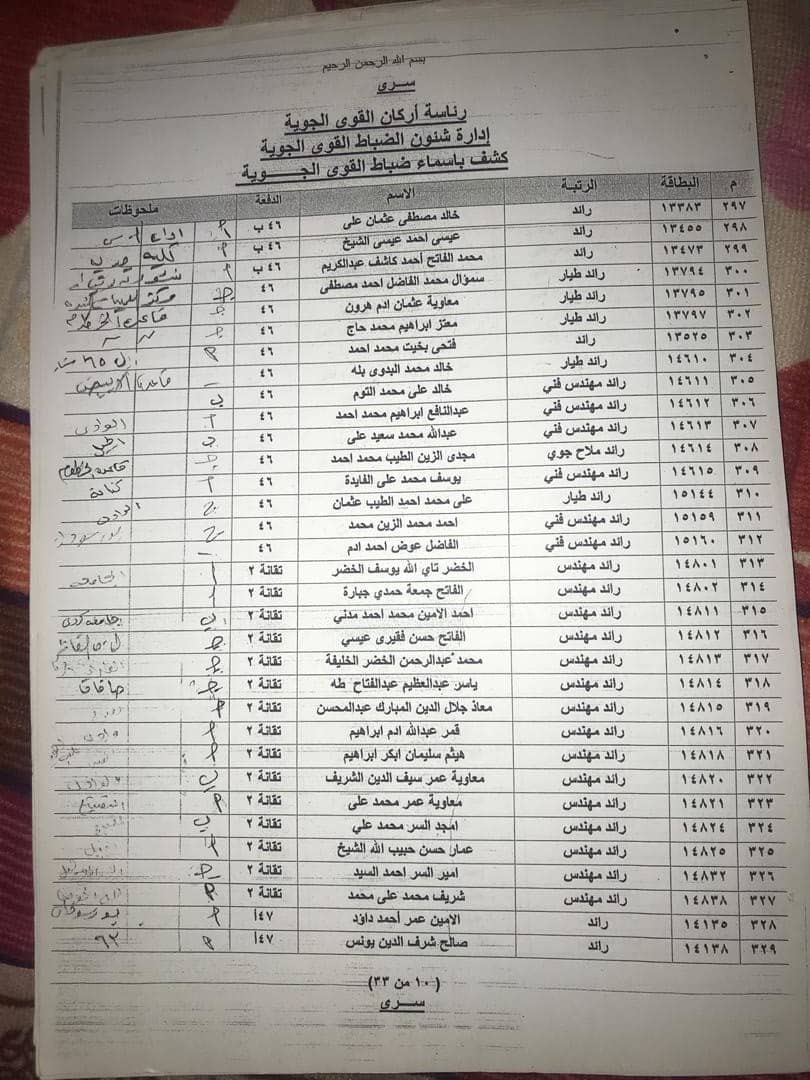 بسم الله الرحمن الرحيم
ســرى
رئاسة أركان القوى الجوية
إدارة شئون الضباط القوى الجوية
كشف باسماء ضباط القوى الجـــوية
م البطاقة الرتبة الاسم الدفعة ملحوظات
٢٩٧ ١٣٣٨٣ رائد خالد مصطفى عثمان على ٤٦ ب
٢٩٨ ١٣٤٥٥ رائد عيسى احمد عيسى الشيخ ٤٦ ب
٢٩٩ ١٣٤٧٣ رائد محمد الفاتح أحمد كاشف عبدالكريم ٤٦ ب
٣٠٠ ١٣٧٩٤ رائد طيار سمؤال محمد الفاضل احمد مصطفى ٤٦
٣٠١ ١٣٧٩٥ رائد طيار معاوية عثمان ادم هرون ٤٦ قاعدة الخرطوم
٣٠٢ ١٣٧٩٧ رائد طيار معتز ابراهيم محمد حاج ٤٦
٣٠٣ ١٣٥٢٥ رائد فتحى بخيت محمد احمد ٤٦
٣٠٤ ١٤٦١٠ رائد طيار خالد محمد البدوى بله ٤٦
٣٠٥ ١٤٦١١ رائد مهندس فني خالد على محمد التوم ٤٦
٣٠٦ ١٤٦١٢ رائد مهندس فني عبدالنافع ابراهيم محمد احمد ٤٦
٣٠٧ ١٤٦١٣ رائد مهندس فني عبدالله محمد سعيد على ٤٦
٣٠٨ ١٤٦١٤ رائد ملاح جوي مجدى الزين الطيب محمد احمد ٤٦
٣٠٩ ١٤٦١٥ رائد مهندس فني يوسف محمد على الفايدة ٤٦
٣١٠ ١٥١٤٤ رائد طيار على محمد احمد الطيب عثمان ٤٦
٣١١ ١٥١٥٩ رائد مهندس فني احمد محمد الزين محمد ٤٦
٣١٢ ١٥١٦٠ رائد مهندس فني الفاضل عوض احمد ادم ٤٦
٣١٣ ١٤٨٠١ رائد مهندس الخضر تاي الله يوسف الخضر تقانة ٢
٣١٤ ١٤٨٠٢ رائد مهندس الفاتح جمعة حمدي جبارة تقانة ٢
٣١٥ ١٤٨١١ رائد مهندس احمد الامين محمد احمد مدني تقانة ٢
٣١٦ ١٤٨١٢ رائد مهندس الفاتح حسن فقيرى عيسي تقانة ٢
٣١٧ ١٤٨١٣ رائد مهندس محمد عبدالرحمن الخضر الخليفة تقانة ٢
٣١٨ ١٤٨١٤ رائد مهندس ياسر عبدالعظيم عبدالفتاح طه تقانة ٢ صافات
٣١٩ ١٤٨١٥ رائد مهندس معاذ جلال الدين المبارك عبدالمحسن تقانة ٢
٣٢٠ ١٤٨١٦ رائد مهندس قمر عبدالله ادم ابراهيم تقانة ٢
٣٢١ ١٤٨١٨ رائد مهندس هيثم سليمان ابكر ابراهيم تقانة ٢
٣٢٢ ١٤٨٢٠ رائد مهندس معاوية عمر سيف الدين الشريف تقانة ٢
٣٢٣ ١٤٨٢١ رائد مهندس معاوية عمر محمد على تقانة ٢
٣٢٤ ١٤٨٢٤ رائد مهندس امجد السر محمد علي تقانة ٢
٣٢٥ ١٤٨٢٥ رائد مهندس عمار حسن حبيب الله الشيخ تقانة ٢
٣٢٦ ١٤٨٣٢ رائد مهندس امير السر احمد السيد تقانة ٢
٣٢٧ ١٤٨٣٨ رائد مهندس شريف محمد على محمد تقانة ٢
٣٢٨ ١٤١٣٥ رائد الامين عمر أحمد داؤد ٤٧أ بورتسودان
٣٢٩ ١٤١٣٨ رائد صالح شرف الدين يونس ٤٧أ
(١٠ من ٣٣)
ســرى